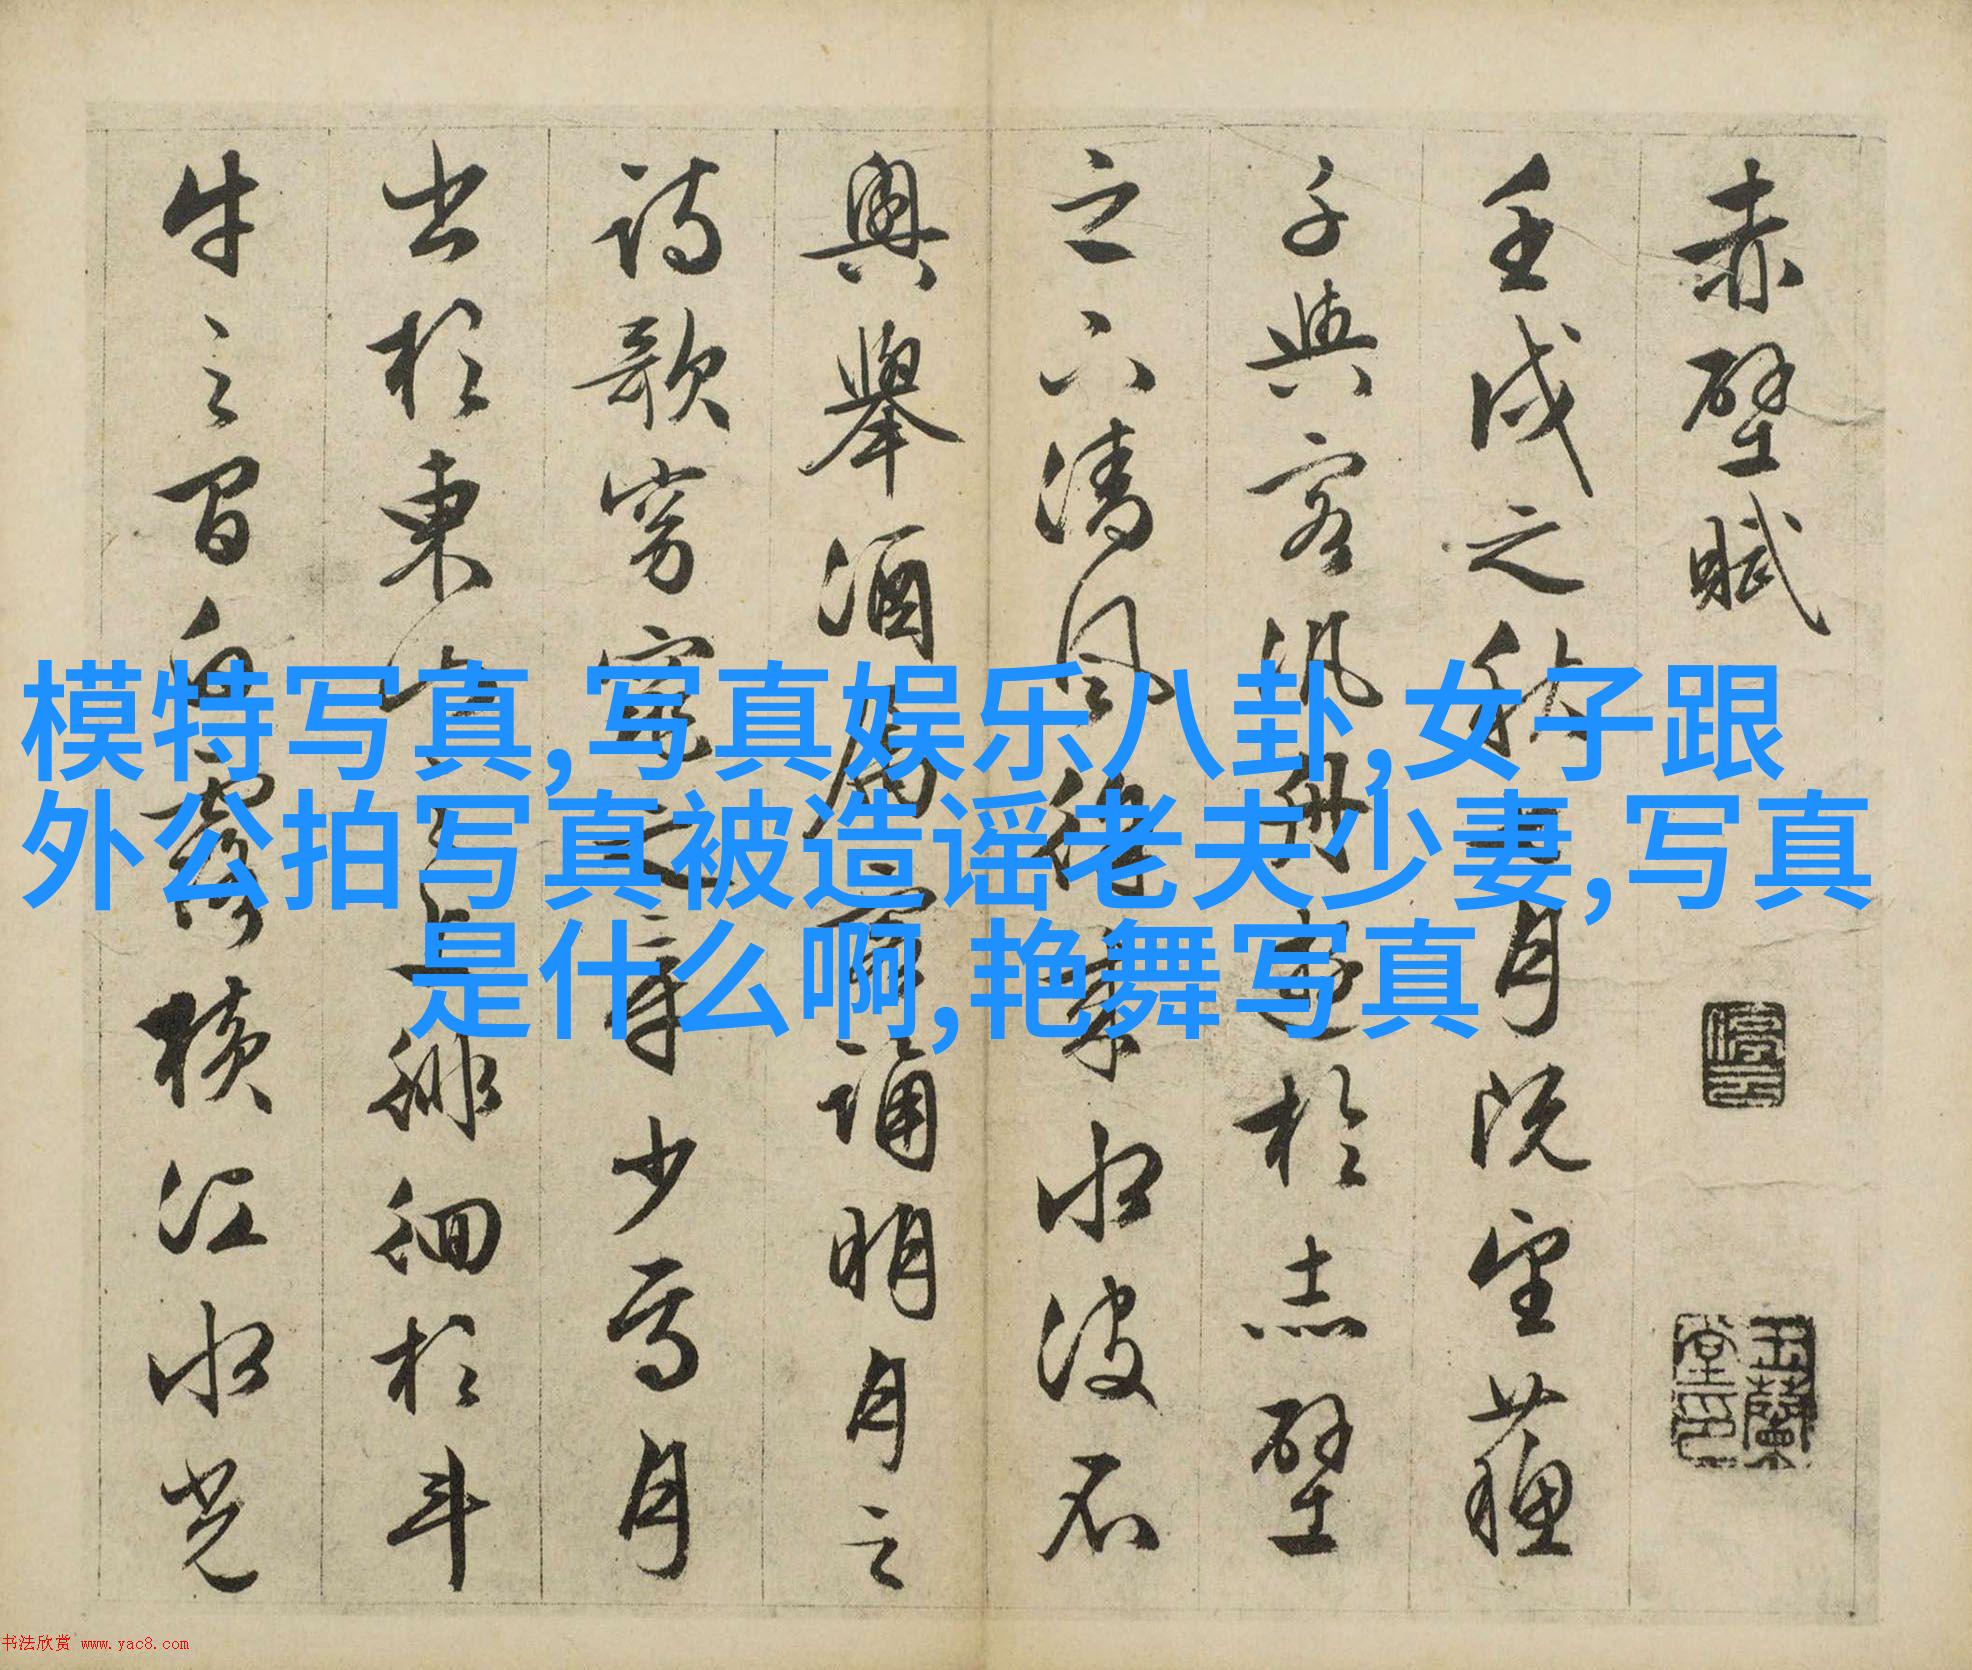 赤壁賦
壬戌之秋七月既望蘇
子與客汎舟遊於赤壁
之下清風徐來水波不
興舉酒屬客誦明月之
詩歌窈窕之章少焉月
出於東山之上徘徊於斗
牛之間白露橫江水光
停雲
玉蘭堂印
模特写真,写真娱乐八卦,女子跟
外公拍写真被造谣老夫少妻,写真
是什么啊,艳舞写真
书法欣赏 www.yac8.com